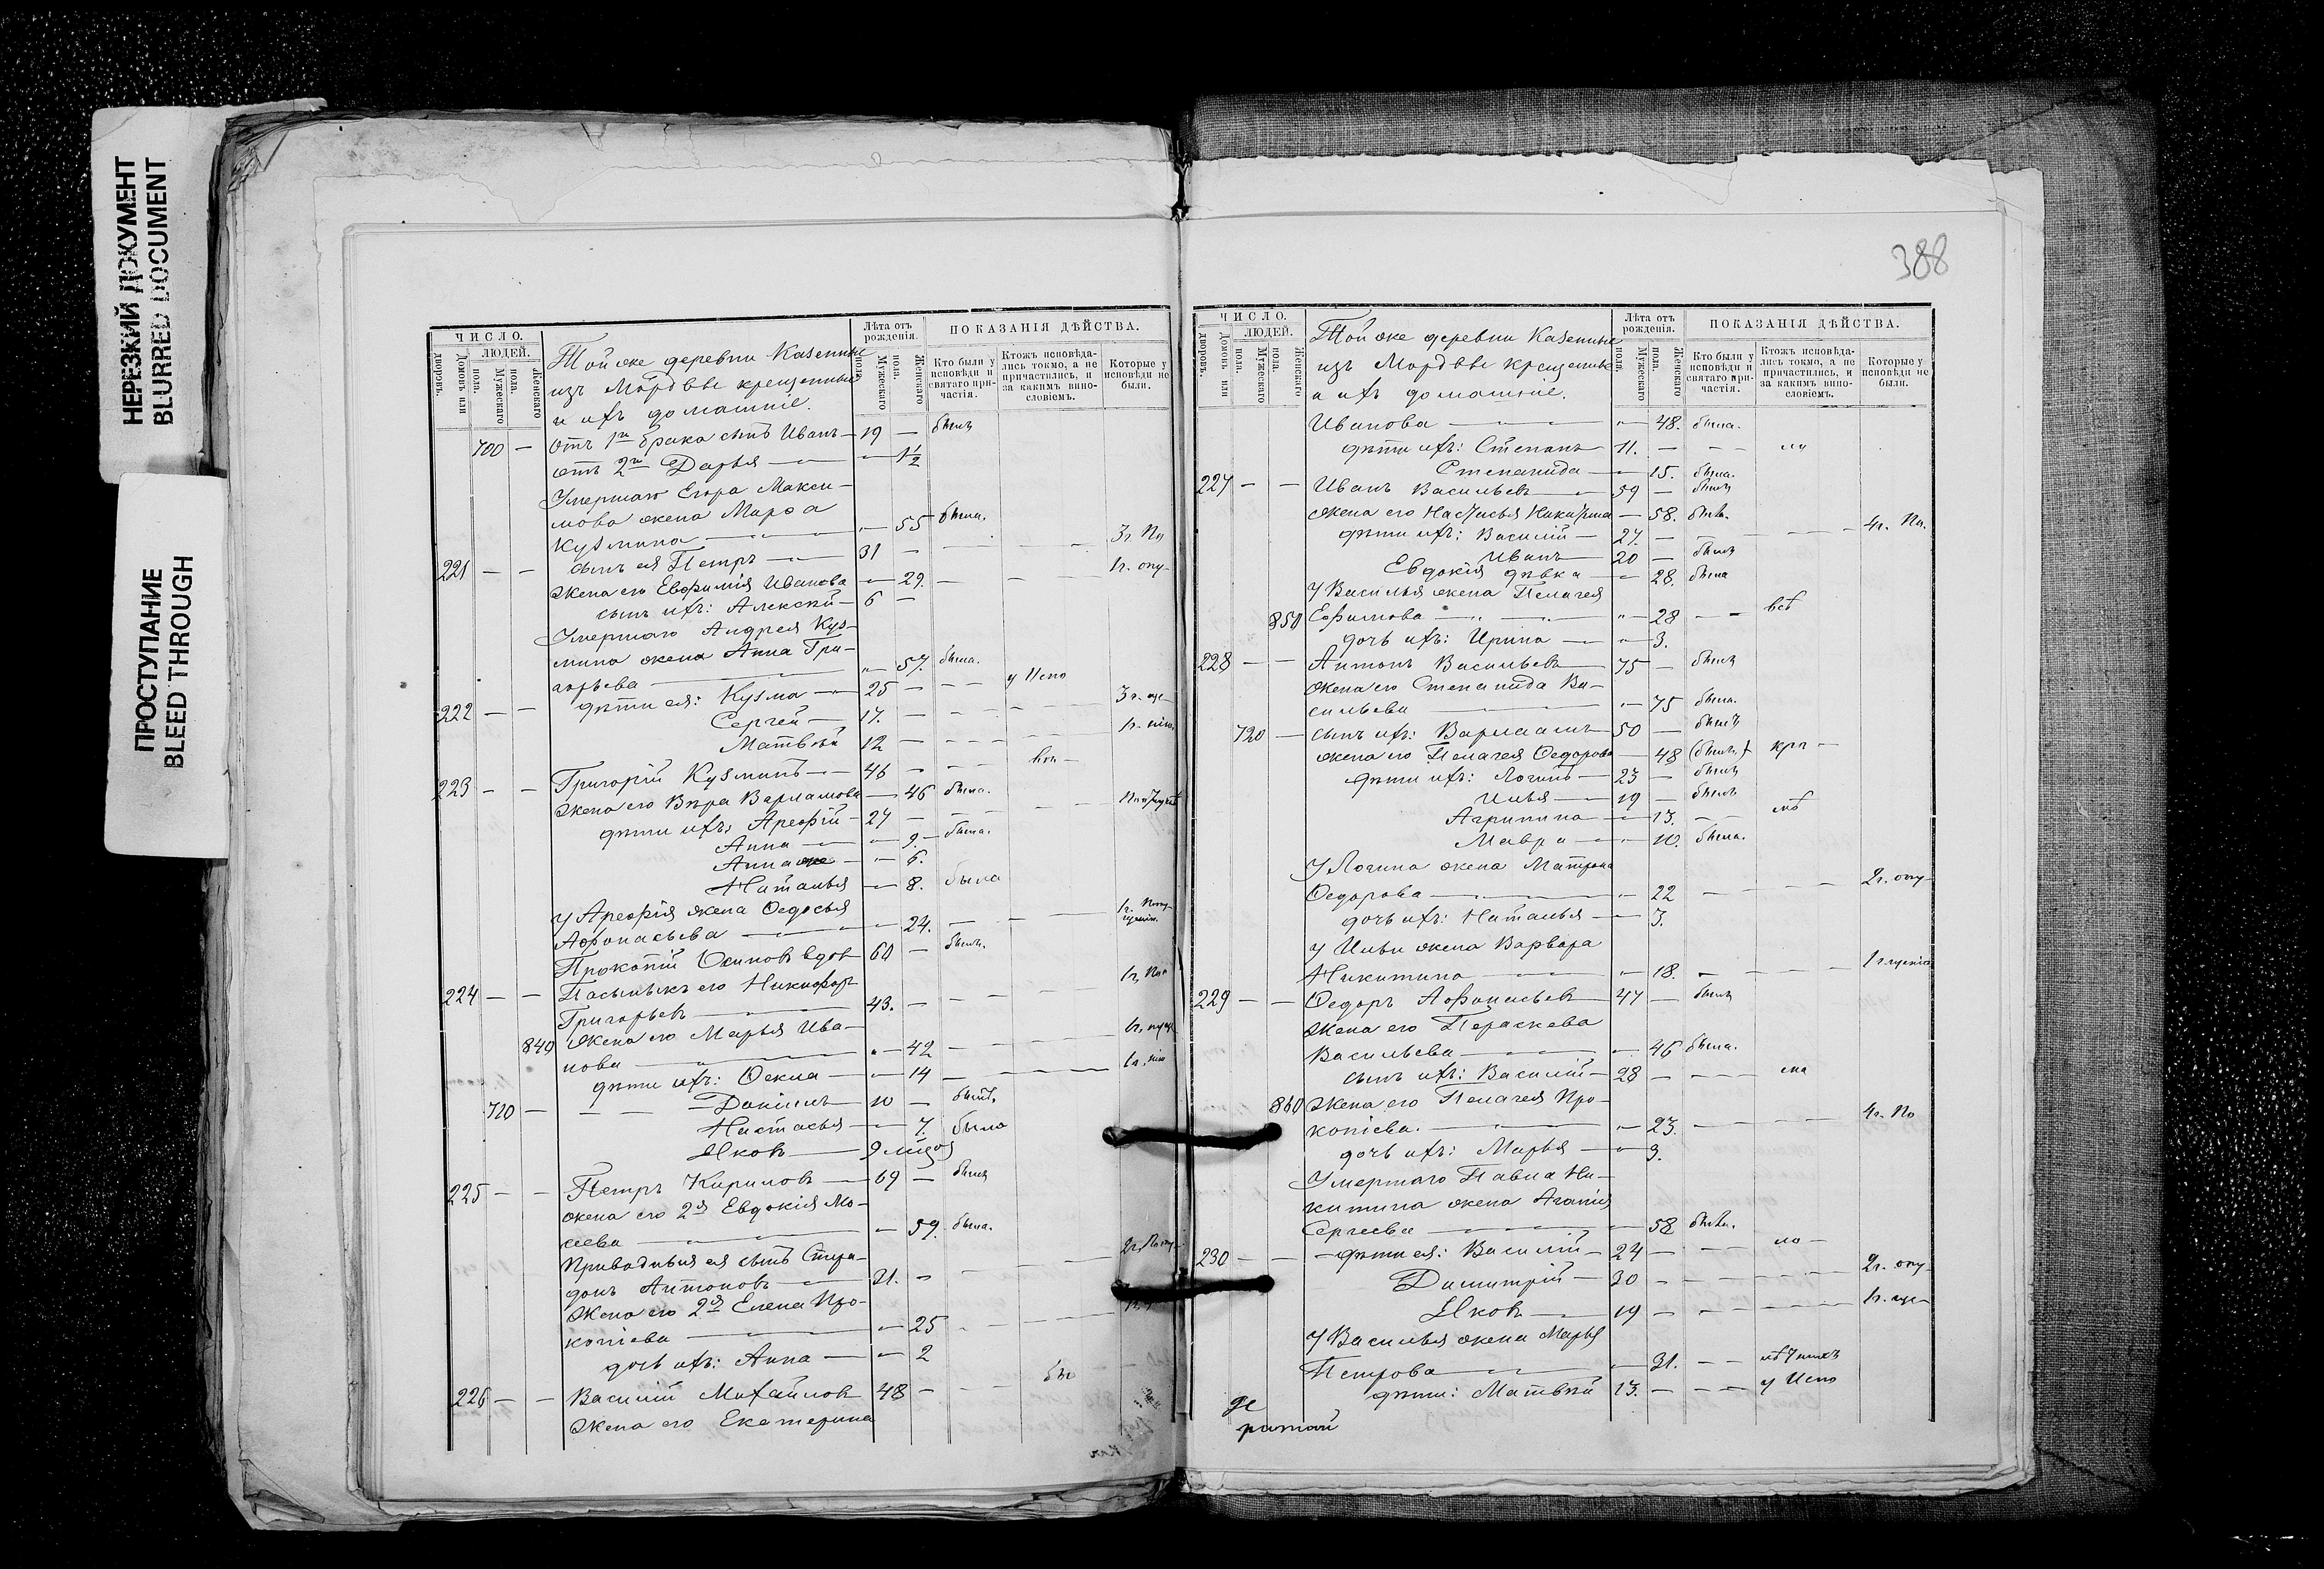 НЕРЕЗКИЙ ДОКУМЕНТ
BLURRED DOCUMENT
ПРОСТУПАНИЕ
BLEED THROUGH
ЧИСЛО.
Домовъ или дворовъ.
ЛЮДЕЙ.
Мужескаго пола.
Женскаго пола.
Той же деревни Казенные
изъ Мордвы крещенные
и ихъ домашніе.
Лѣта отъ рожденія.
Мужескаго пола.
Женскаго пола.
ПОКАЗАНІЯ ДѢЙСТВА.
Кто были у исповѣди и святаго причастія.
Ктожъ исповѣдались токмо, а не причастились, и за какимъ винословіемъ.
Которые у исповѣди не были.
700 — отъ 1го брака сынъ Иванъ — 19 — былъ
отъ 2го Дарья — 1½
Умершаго Егора Макси-
мова жена Марѳа
Кузмина — 55 была.
221 — — сынъ ея Петръ — 31 — 3г. По
Жена его Евфимія Иванова — 29. — 1г. опу-
сынъ ихъ: Алексѣй — 6 —
Умершаго Андрея Куз-
мина жена Анна Гри-
горьева — 57. была.
222 — — дѣти ея: Кузма — 25 — у Испо
Сергей — 17. — 3г.
Матвѣй 12 — 1г.
223 — — Григорій Кузминъ — 46 —
Жена его Вѣра Варламова — 46 была.
дѣти ихъ: Арефій — 27 —
Анна — 9. — была.
Анна же — 6.
Наталья — 8. была
У Арефія жена Ѳедосья
Аѳонасьева — 24. — 1г.
Прокопій Осиповъ вдов 60 — былъ.
224 — — Пасынокъ его Никифоръ
Григорьевъ — 43. — 1г.
840 Жена его Марья Ива-
нова — 42 — 1г.
дѣти ихъ: Ѳекла — 14 — 1г.
710 — Іоакимъ 10 — былъ
Настасья — 7. была
Яковъ — 9 мцов
225 — — Петръ Кириловъ — 69 — былъ
жена его 2я Евдокія Мо-
сеева — 59. была.
Приводныя ея сынъ Спири-
донъ Антоновъ — 31. — 2г.
Жена его 2я Елена Про-
копіева — 25
дочь ихъ: Анна — 2
226 — — Василій Михайловъ 48 —
Жена его Екатерина
388
ЧИСЛО.
Домовъ или дворовъ.
ЛЮДЕЙ.
Мужескаго пола.
Женскаго пола.
Той же деревни Казенные
изъ Мордвы крещенные
и ихъ домашніе.
Лѣта отъ рожденія.
Мужескаго пола.
Женскаго пола.
ПОКАЗАНІЯ ДѢЙСТВА.
Кто были у исповѣди и святаго причастія.
Ктожъ исповѣдались токмо, а не причастились, и за какимъ винословіемъ.
Которые у исповѣди не были.
Иванова — 48. была.
дѣти ихъ: Степанъ 11. —
Степанида — 15. была.
227 — — Иванъ Васильевъ 59 — былъ
Жена его Настасья Никитина — 58. была.
дѣти ихъ: Василій — 27. — 4г. По.
Иванъ 20 — былъ
Евдокія дѣвка — 28. была
У Василья жена Пелагея
850 Ефимова — 28 —
дочь ихъ: Ирина — 3.
228 — — Антонъ Васильевъ — 75 — былъ
Жена его Степанида Ва-
сильева — 75 была.
720 — сынъ ихъ: Варлаамъ 50 — былъ
жена его Пелагея Ѳедорова — 48
дѣти ихъ: Логинъ — 23 — былъ
Илья — 19 — былъ
Агрипина — 13. —
Мавра — 10. была.
У Логина жена Матрона
Ѳедорова — 22 — 2г. опу-
дочь ихъ: Наталья — 3.
У Ильи жена Варвара
Никитина — 18. — 1г.
229 — — Ѳедоръ Аѳонасьевъ 47 — былъ
Жена его Пераскева
Васильева — 46 была.
сынъ ихъ: Василій — 28 —
860 Жена его Пелагея Про-
копіева. — 23. — 4г. По
дочь ихъ: Марья — 3.
Умершаго Павла Ни-
китина жена Агапія
Сергеева — 58 была.
230 — — дѣти ея: Василій — 24 —
Димитрій — 30 — 2г. опу-
Яковъ — 19 — 1г.
У Василья жена Марья
Петрова — 31. —
дѣти: Матвѣй 13. — у Испо